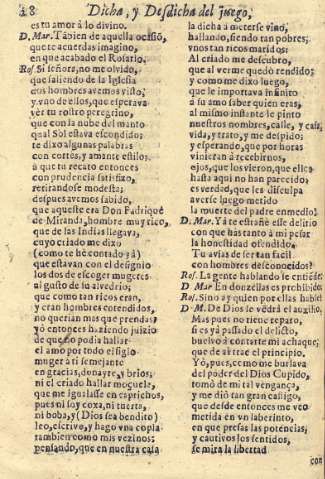 28 Dicha, y Desdicha del juego,
es tu amor á lo divino.
D. Mar. Tábien de aquella ocasió,
que te acuerdas imagino,
en que acabado el Rosario.
Ros. Si señora, no me olvido,
que saliendo de la Iglesia
dos hombres avemos visto;
y vno de ellos, que esperava
ver tu rostro peregrino,
que con la nube del manto
qual Sol estava escondido;
te dixo algunas palabras
con cortes, y amante estilo:
à que tu recato entonces
con prudencia satisfizo,
retirandose modesta;
despues avemos sabido,
que aqueste era Don Fadrique
de Miranda, hombre muy rico,
que de las Indias llegava,
cuyo criado me dixo
(como te hé contado yá)
que estavan con el designio
los dos de escoger mugeres
al gusto de su alvedrio;
que como tan ricos eran,
y eran hombres entendidos,
no querian mas que prendas;
yó entonces haziendo juizio
de que no podia hallar
el amor por todo el siglo
muger à ti semejante
en gracias, donayre, y brios;
ni el criado hallar moçuela,
que me igualasse en caprichos,
pues ni soy coxa, ni tuerta,
ni boba, y (Dios sea bendito)
leo, escrivo, y hago vna copla
tambien como mis vezinos:
pensando, que en nuestra casa
la dicha à meterse vino,
hallando, siendo tan pobres,
vnos tan ricos maridos:
Al criado me descubro,
que al verme quedò rendido;
y como me dixo luego,
que le importava infinito
à su amo saber quien eras,
al mismo instante le pinto
nuestros nombres, calle, y casa,
vida, y trato, y me despido;
y esperando, que por horas
vinieran à recebirnos,
ojos, que los vieron, que ellos
hasta aqui no han parecido;
es verdad, que les disculpa
averse luego metido
la muerte del padre enmedio.
D. Mar. Yá te estrañé esse delirio
con que has tanto à mi pesar
la honestidad ofendido.
Tu avias de ser tan facil
con hombres desconocidos?
Ros. La gente hablando se entiéde.
D. Mar En donzellas es prohibido
Ros. Sino ay quien por ellas hable?
D. M. De Dios le vèdrá el auxilio.
Mas pues no tiene reparo,
si es yà passado el delicto,
buelvo à contarte mi achaque;
que de atrae el principio.
Yò, pues, como me burlava
del poder del Dios Cupido,
tomó de mi tal vengança,
y me dió tan gran castigo,
que desde entonces me veo
metida en vn laberinto,
en que presas las potencias,
y cautivos los sentidos,
se mira la libertad
con